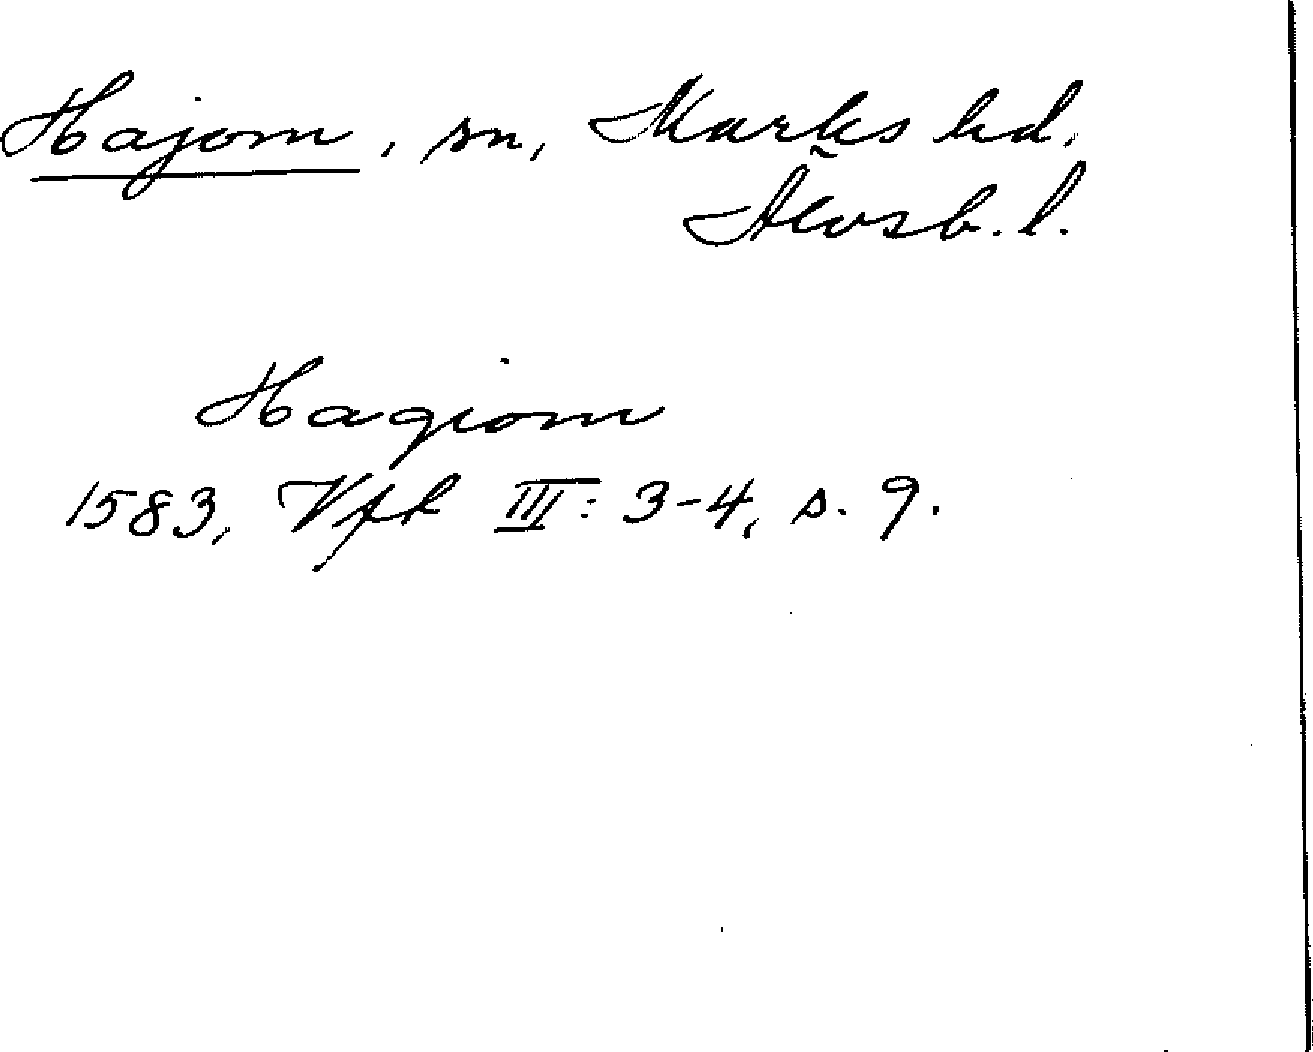 Hajom, sn, Marks hd.
Älvsb. l.
Hagiom
1583, Vfk III: 3-4, s. 9.